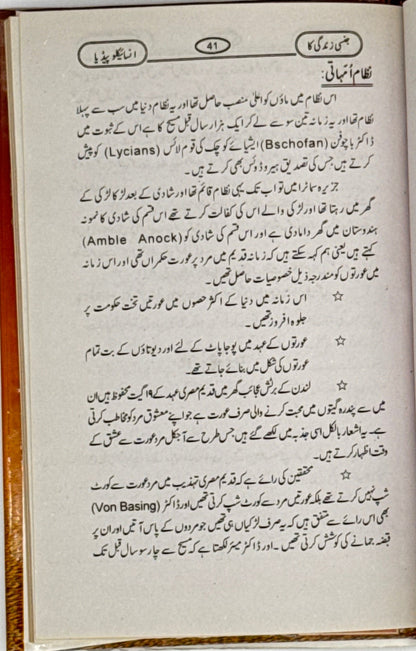 جنسی زندگی کا
41
انسائیکلو پیڈیا
نظام اُمّہاتی:
اس نظام میں ماؤں کو اعلیٰ منصب حاصل تھا اور یہ نظام دنیا میں سب سے پہلا
نظام تھا اور یہ زمانہ تین سو سے لے کر ایک ہزار سال قبل مسیح کا ہے اس کے ثبوت میں
ڈاکٹر باچوفن (Bschofan) ایشیائے کوچک کی قوم لائس (Lycians) کو پیش
کرتے ہیں جس کی تصدیق ہیروڈوٹس بھی کرتے ہیں۔
جزیرہ سماٹرا میں تو اب تک یہی نظام قائم تھا اور شادی کے بعد لڑکا لڑکی کے
گھر میں رہتا تھا اور لڑکی والے اس کی کفالت کرتے تھے اس قسم کی شادی کا نمونہ
ہندوستان میں گھر دامادی ہے اور اس قسم کی شادی کو (Amble Anock)
کہتے ہیں یعنی ہم کہہ سکتے ہیں کہ زمانہ قدیم میں مرد پر عورت حکمراں تھی اور اس زمانہ
میں عورتوں کو مندرجہ ذیل خصوصیات حاصل تھیں۔
☆ اس زمانہ میں دنیا کے اکثر حصوں میں عورتیں تخت حکومت پر
جلوہ افروز تھیں۔
☆ عورتوں کے عہد میں پوجا پاٹ کے لئے اور دیوتاؤں کے بت تمام
عورتوں کی شکل میں بنائے جاتے تھے۔
☆ لندن کے برٹش عجائب گھر میں قدیم مصری عہد کے ۱۹ گیت محفوظ ہیں ان
میں سے پندرہ گیتوں میں محبت کرنے والی صرف عورت ہے جو اپنے معشوق مرد کو مخاطب کرتی
ہے۔ یہ اشعار بالکل اسی جذبہ میں لکھے گئے ہیں جس طرح سے آجکل مرد عورت سے عشق کے
وقت اظہار کرتے ہیں۔
☆ محققین کی رائے ہے کہ قدیم مصری تہذیب میں مرد عورت سے کورٹ
شپ نہیں کرتے تھے بلکہ عورتیں مرد سے کورٹ شپ کرتی تھیں اور ڈاکٹر (Von Basing)
بھی اس رائے سے متفق ہیں کہ یہ صرف لڑکیاں ہی تھیں جو مردوں کے پاس آتیں اور ان پر
قبضہ جمانے کی کوشش کرتی تھیں۔ اور ڈاکٹر میئر لکھتا ہے کہ مسیح سے چار سو سال قبل تک